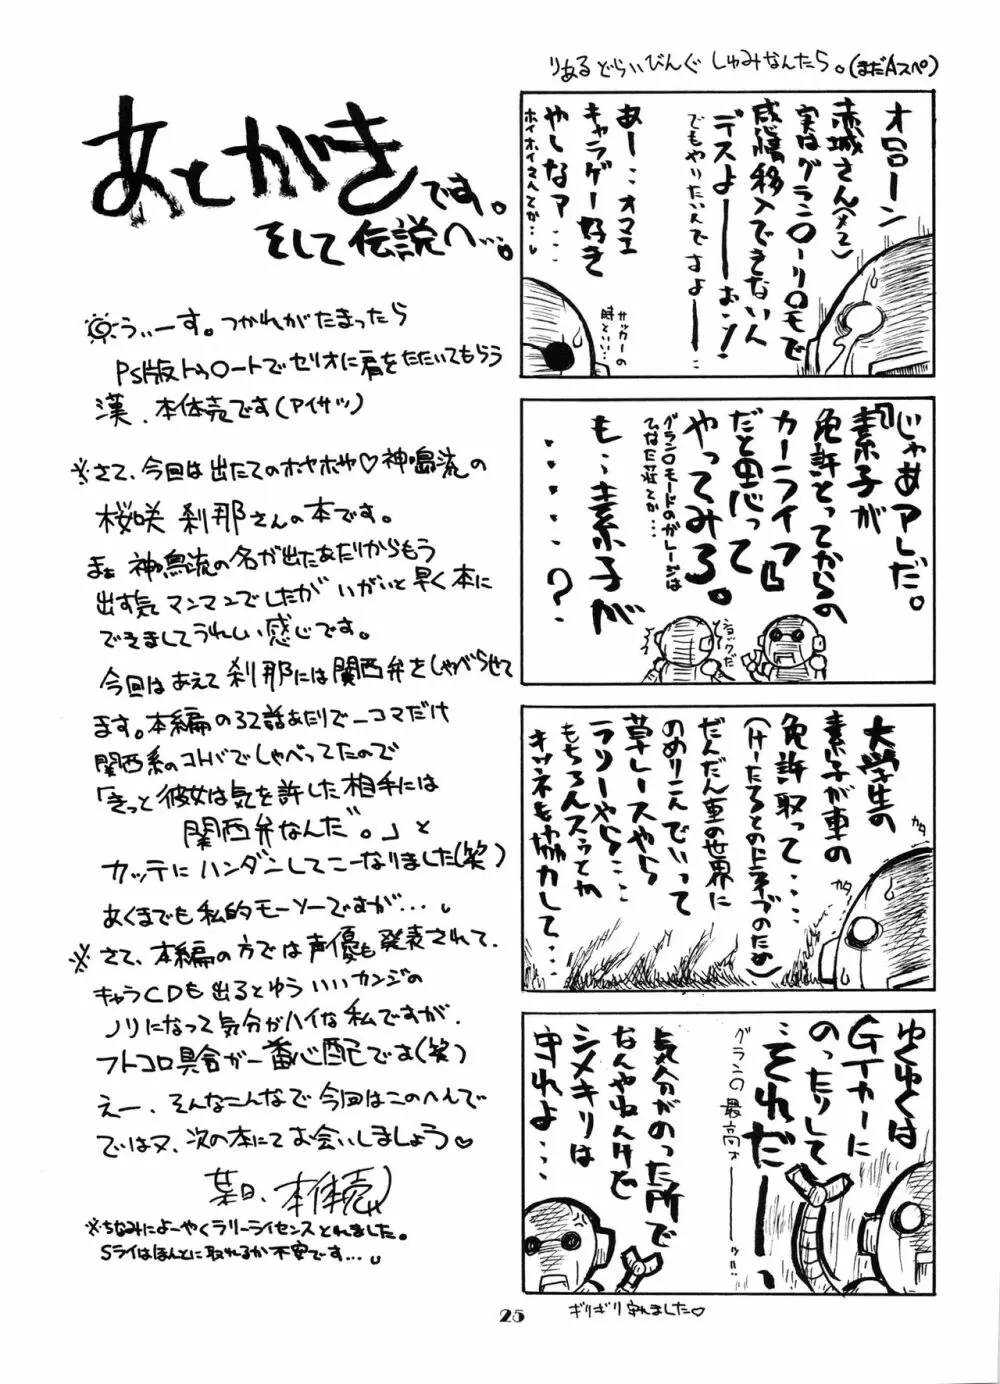 あとがきです。
そして伝説へ…。
うぃーす。つかれがたまったら
PS版トゥ○ートでセリオに肩をたたいてもらう
漢、本体売です(アイサツ)
※さて、今回は出たてのホヤホヤ♡神鳴流の
桜咲 刹那さんの本です。
まぁ神鳴流の名が出たあたりからもう
出す気マンマンでしたがいがいと早く本に
できましてうれしい感じです。
今回はあえて刹那には関西弁をしゃべらせて
ます。本編の32話あたりで一コマだけ
関西系のコトバでしゃべってたので
「きっと彼女は気を許した相手には
関西弁なんだ。」と
カッテにハンダンしてこーなりました(笑)
あくまでも私的モーソーですが…。
※さて、本編の方では声優も発表されて、
キャラCDも出るとゆういいカンジの
ノリになって気分がハイな私ですが、
フトコロ具合が一番心配です(笑)
えー、そんなこんなで今回はこのへんで
ではヌ、次の本にてお会いしましょう♡
某日、本体売
※ちなみによーやくラリーライセンスとれました。
Sライはほんとに取れるか不安です…。
りある どらいびんぐ しゅみなんたら。(まだAスペ)
オローン
赤城さん(メ2)
実はグラン○ーリ○モで
感情移入できないん
デスよーーーぉ!
でもやりたいんですよー…
あー…オマエ
キャラゲー好き
やしなァ…
ホイホイさんてか…
サッカーの
時といい…
『じゃあアレだ。
素子が
免許とってからの
カーライフ』
だと思って
やってみろ。
グラン○モードのガレージは
ひなた荘とか…
も…素子が
……?
ショックだ
大学生の
素子が車の
免許取って…
(けーたろとのドライブのため)
だんだん車の世界に
のめりこんでいって
草レースやら
ラリーやら…
もちろんスゥとか
キツネも協力して…
カタ
カタ
ゆくゆくは
GTカーに
のったりして
…それだーーっ
グラン○最高ォーーッ!!
気分がのった所で
なんやねんけど
シメキリは
守れよ…
ギリギリ守れました♡
25